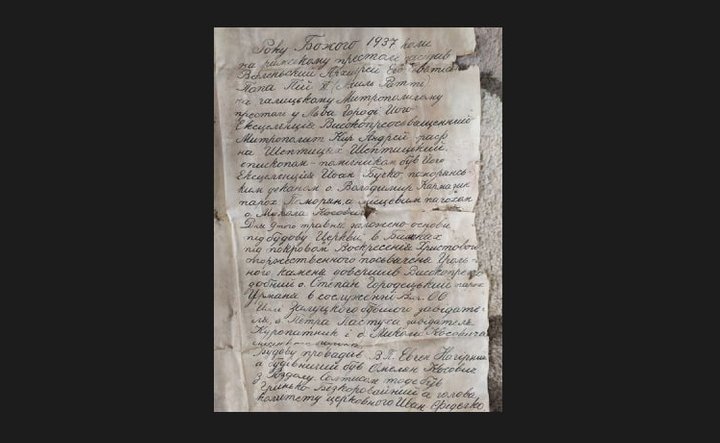 Року Божого 1937 коли
на римському престолі засідав
Вселенський Архиєрей Єго
Папа Пій Ратті
на галицькому Митрополичому
престолі у Льва Городі Його
Ексцеленція Високопреосвященний
Митрополит Кир Андрей граф
на Шептицах Шептицький
єпископам-помічником був Його
Ексцеленція Йоан Бучко поморянсь-
ким деканом о. Володимир Кармазин
парох Поморян, а місцевим парохом
о. Микола Косович
Дня 9ного травня заложено основи
під будову Церкви в
під покровом Воскресенія Христового
торжественного посьвячення Уголь-
ного каменя довершив Високопрепо-
добний о. Степан Городецький парох
Урманя в сослуженні ОО
Залуцкого завідате-
ля, о. Петра Пастуха завідателя
Куропатник і о. Миколи Косовича
Будову провадив В.П. Евген Нагірний
а будівничий був Омелян Косович
з Поздолу. Солтисом тоде був
Гринько Безкоровайний а голова
комітету церковного Иван